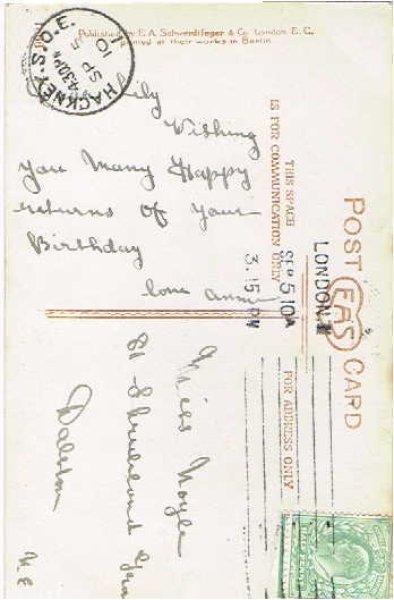 Published by E. A. Schwerdtfeger & Co. London E. C.
Printed at their works in Berlin
HACKNEY. S. O. E.
4.30 PM
SP 5
10
Lily
Wishing
you Many Happy
returns of your
Birthday
love
POST CARD
EAS
THIS SPACE
IS FOR COMMUNICATION ONLY
FOR ADDRESS ONLY
LONDON. N
SEP 5 10A
3. 15 PM
Miss
Dalston
N E